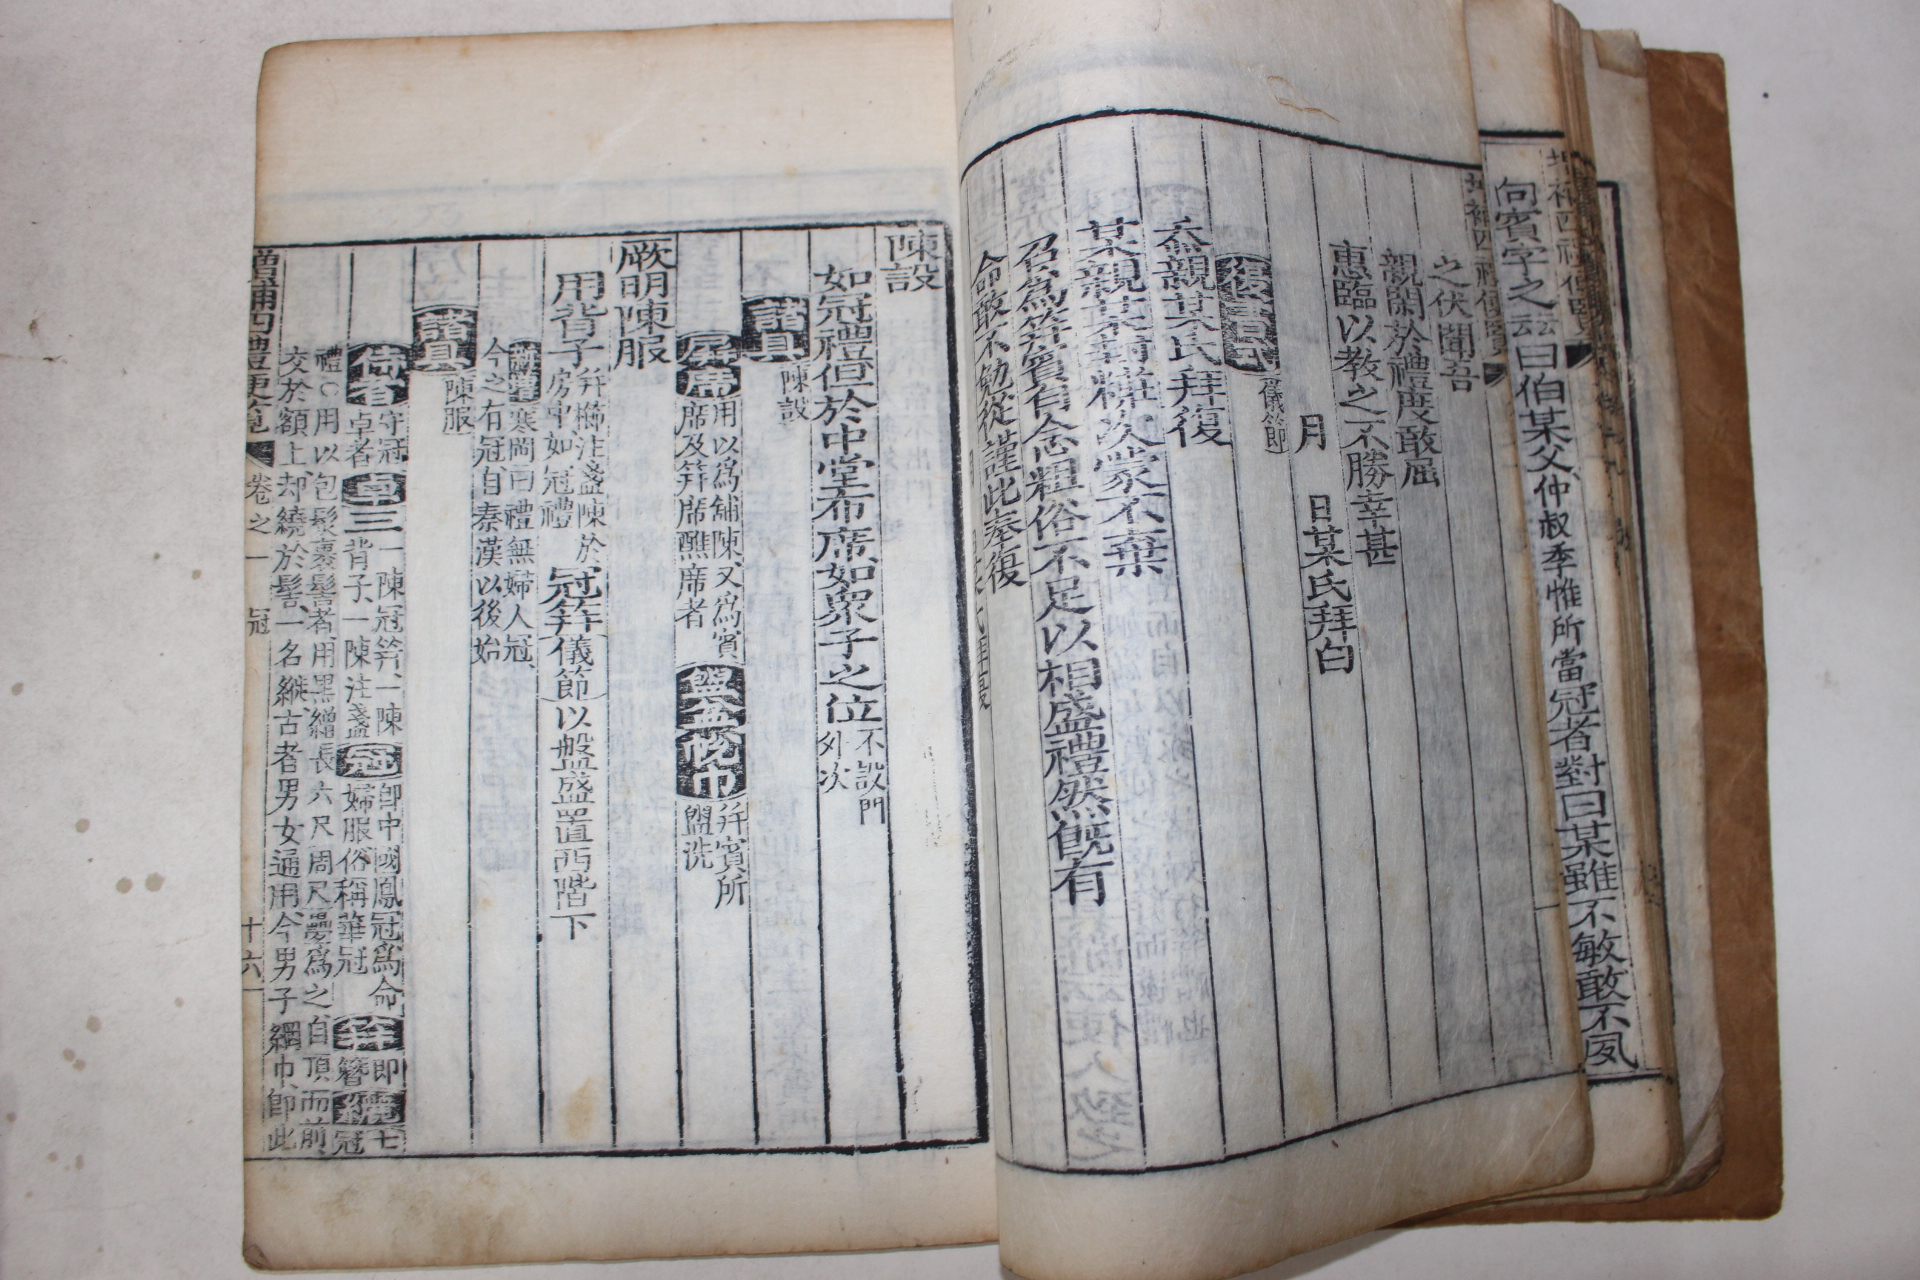 向賓字之云曰伯某父仲叔季惟所當冠者對曰某雖不敏敢不夙
之伏聞吾
親閑於禮度敢屈
惠臨以教之不勝幸甚
月 日某氏拜白
復書式 儀節
忝親某氏拜復
某親某封粧次蒙不棄
召爲筓賓自念粗俗不足以相盛禮然旣有
命敢不勉從謹此奉復
陳設
如冠禮但於中堂布席如衆子之位 不設門
外次
諸具 陳設
屛席 用以爲鋪陳又爲賓
席及筓席醮席者
盥盆帨巾 幷賓所
盥洗
厥明陳服
用背子 幷櫛注盞陳於
房中如冠禮
冠筓儀節以盤盛置西階下
寒岡曰禮無婦人冠
今之有冠自秦漢以後始
諸具 陳服
侍者 守冠
卓者
卓三 一陳冠筓一陳
背子一陳注盞
冠 卽中國鳳冠爲命
婦服俗稱華冠
筓 卽
簪
縰 七
冠
禮〇用以包髮裹髻者用黑繒長六尺周尺爲之自頂而前
交於額上却繞於髻一名縰古者男女通用今男子網巾卽此
增補四禮便覽 卷之一 冠 十六